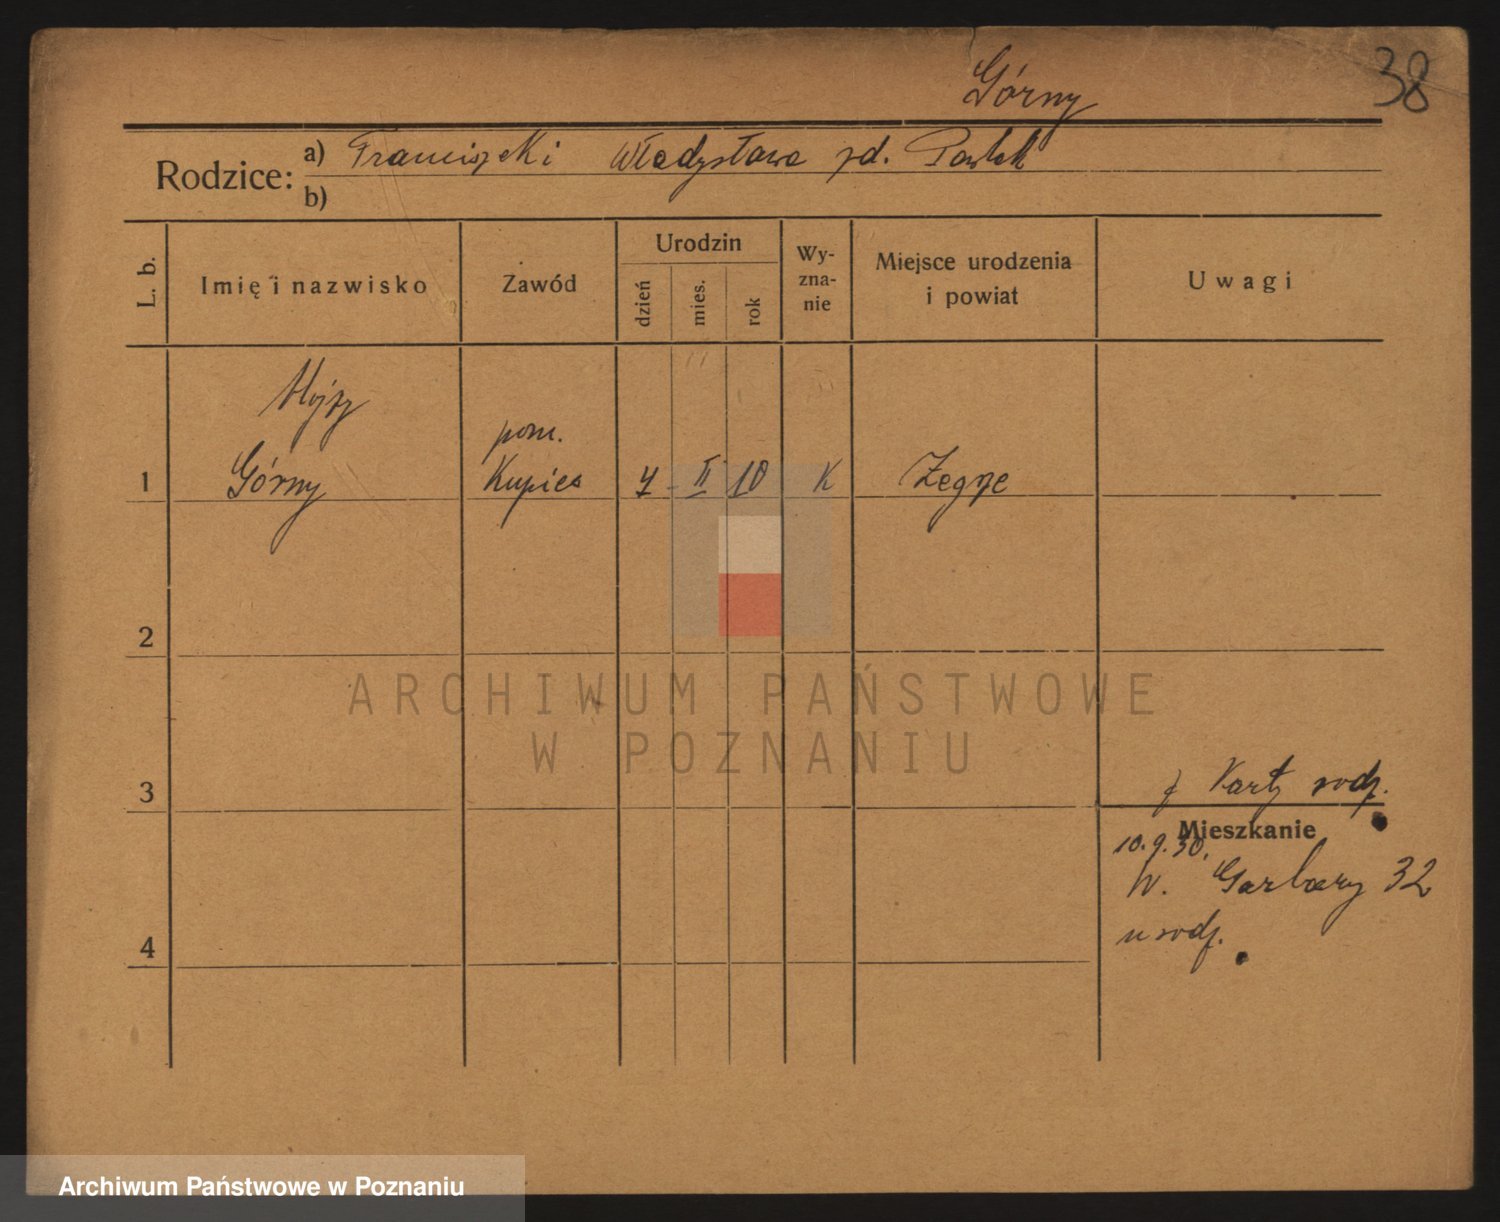 Górny
38
Rodzice:
a) Franciszek i Władysława zd. Pawlak
b)
L. b.
Imię i nazwisko
Zawód
Urodzin
dzień
mies.
rok
Wy-
zna-
nie
Miejsce urodzenia
i powiat
Uwagi
pom.
1 Górny Kupiec II 10 K Zegrze
2
ARCHIWUM PAŃSTWOWE
W POZNANIU
3
z Karty rodz.
Mieszkanie
10.9.30.
W. Garbary 32
u rodz.
4
Archiwum Państwowe w Poznaniu